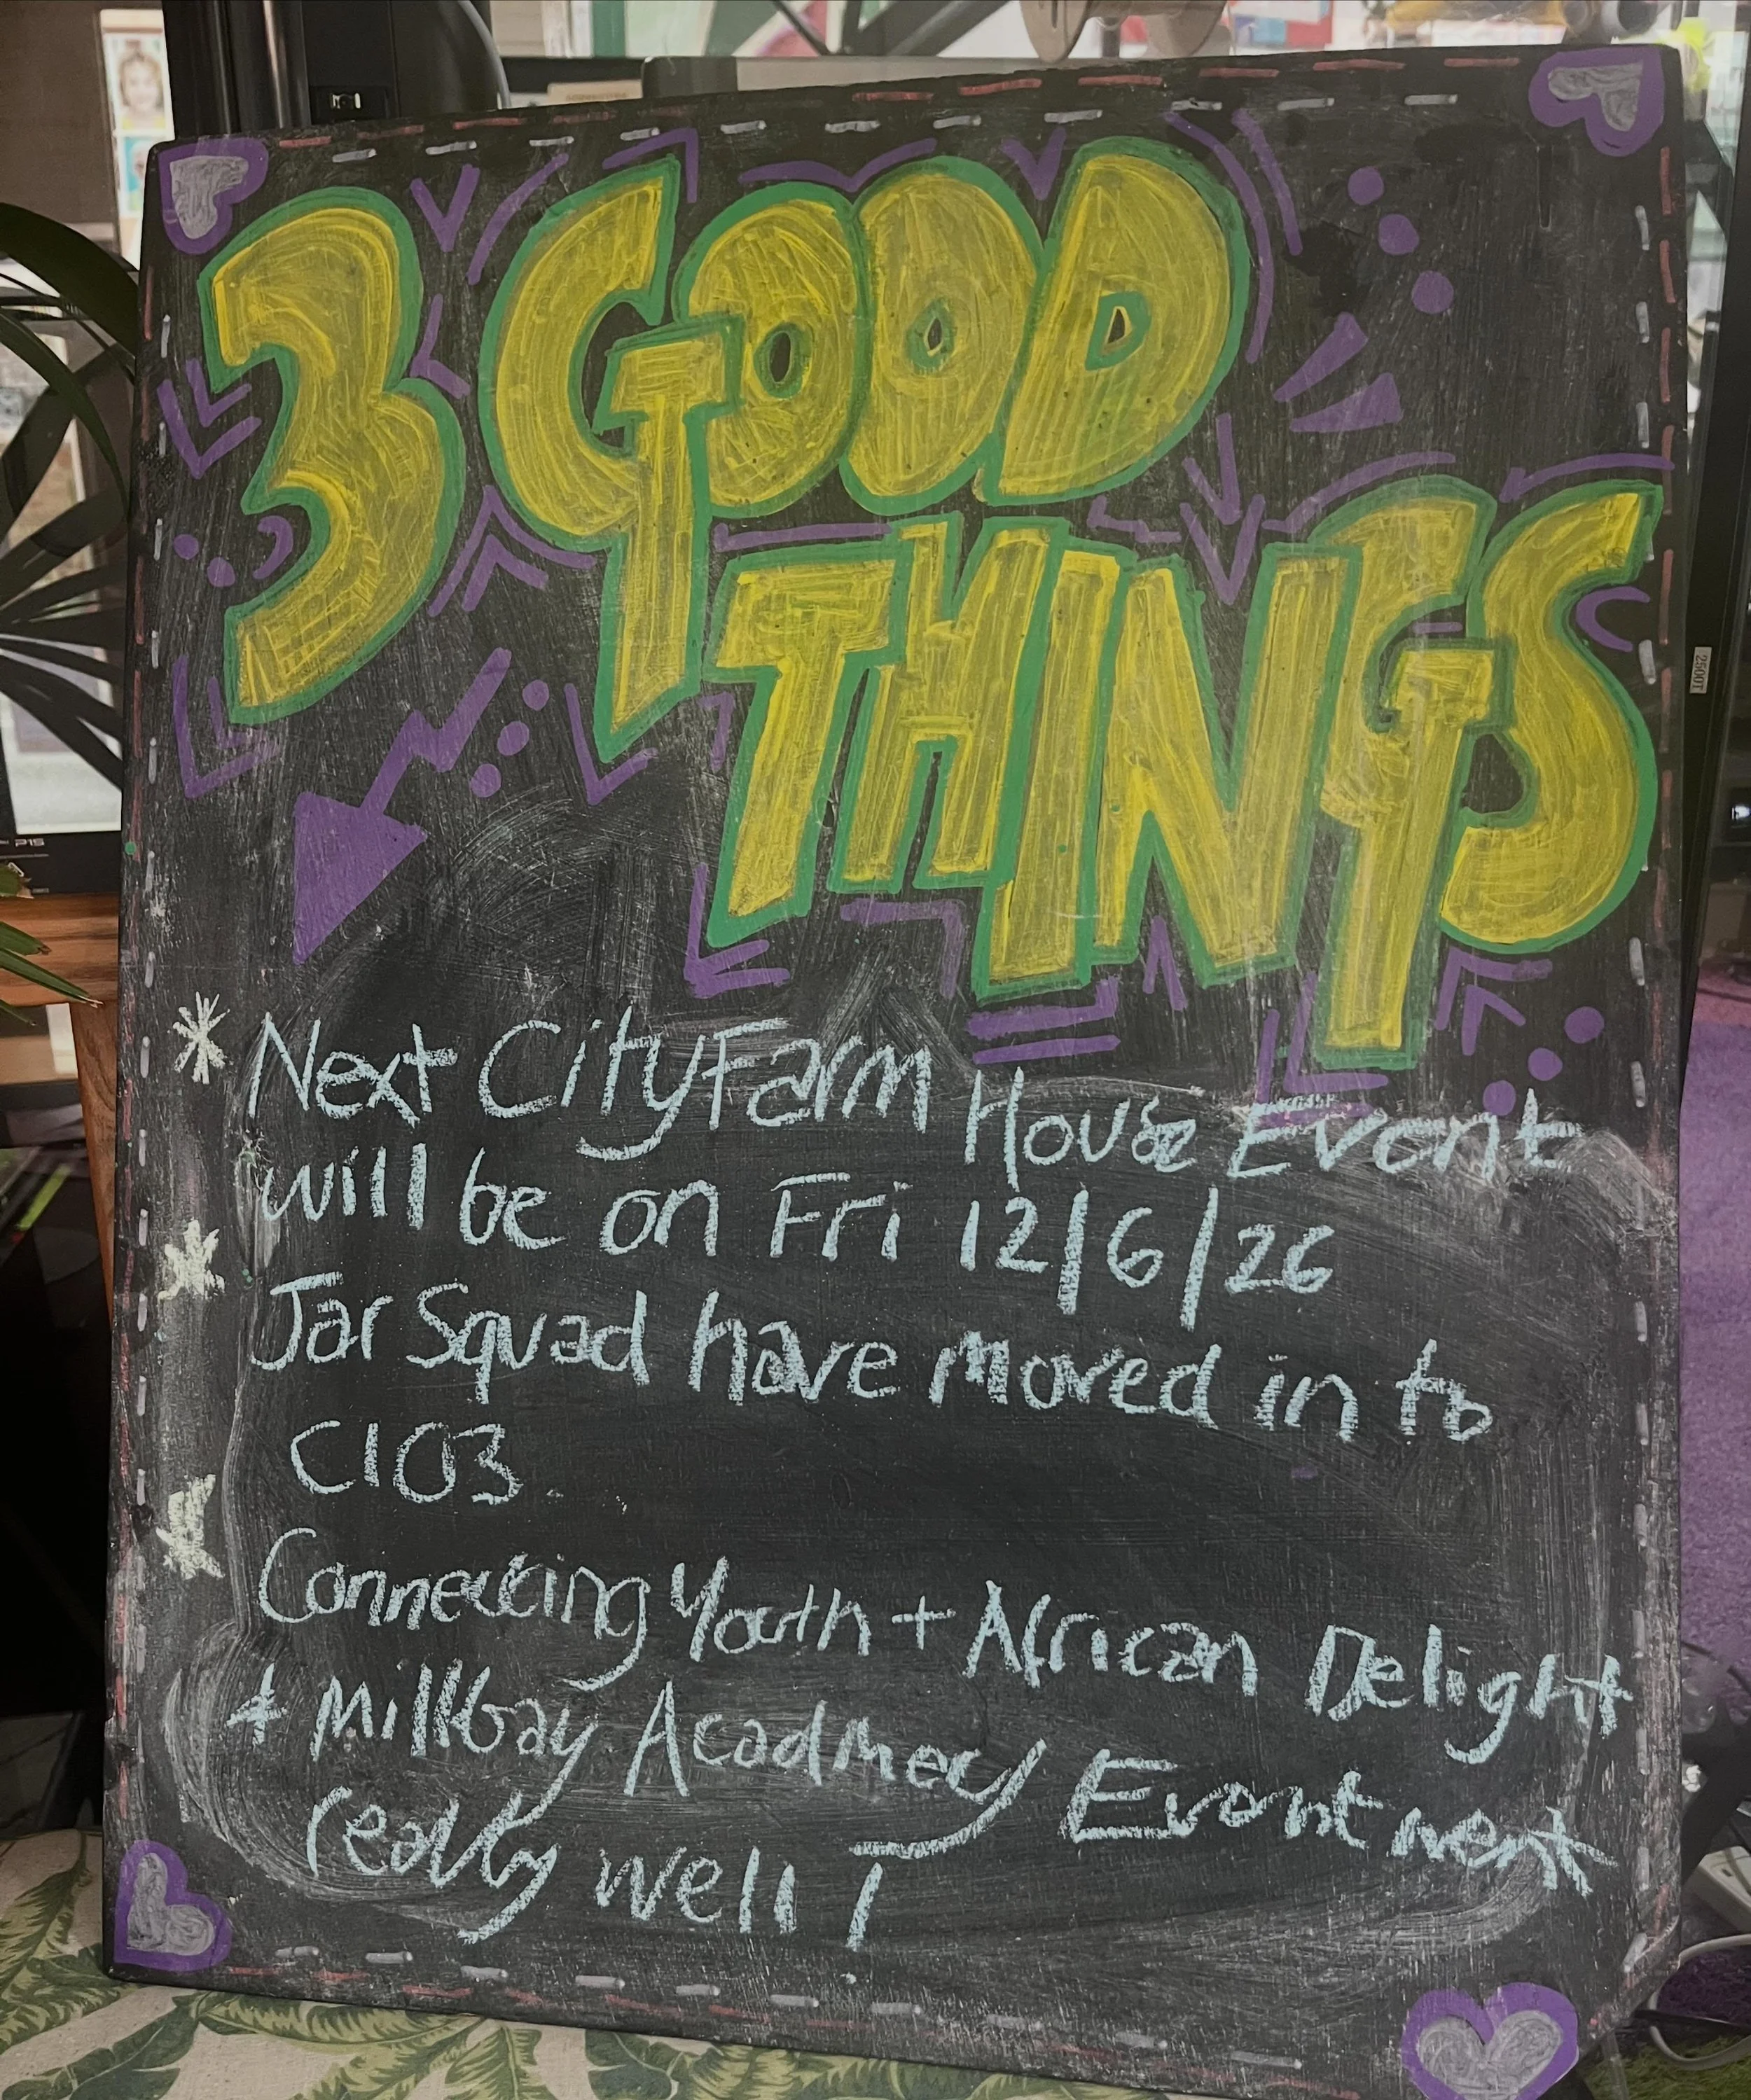 3 GOOD
THINGS
* Next CityFarm House Event
will be on Fri 12/6/26
* Jar Squad have moved in to
C103
* Connecting Youth + African Delight
+ Millbay Acadmey Event went
really well!
2500T
P15